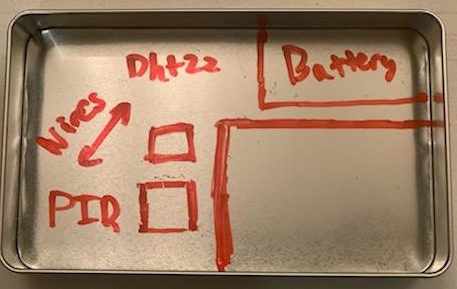 Dht22
Battery
Wires
PIR